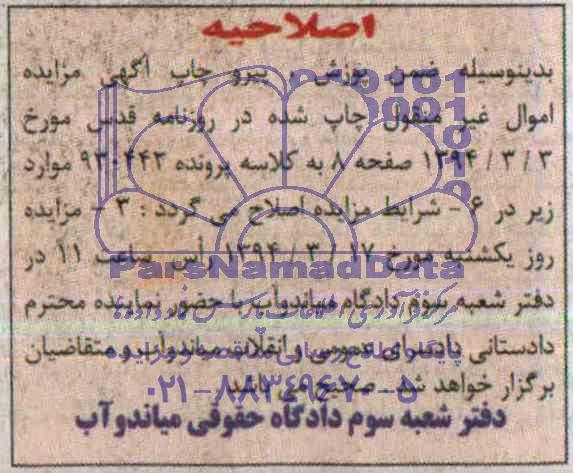 اصلاحیه
بدینوسیله ضمن پوزش ، پیرو چاپ آگهی مزایده
اموال غیر منقول چاپ شده در روزنامه قدس مورخ
۱۳۹۴/۳/۳ صفحه ۸ به کلاسه پرونده ۹۳۰۴۴۲ موارد
زیر در ۶ - شرایط مزایده اصلاح می گردد : ۳ - مزایده
روز یکشنبه مورخ ۱۳۹۴/۳/۱۷ رأس ساعت ۱۱ در
دفتر شعبه سوم دادگاه میاندوآب با حضور نماینده محترم
دادستانی دادسرای عمومی و انقلاب میاندوآب و متقاضیان
برگزار خواهد شد . صحیح می باشد
دفتر شعبه سوم دادگاه حقوقی میاندوآب
ParsNamadData
۰۲۱-۸۸۳۴۹۶۷۰-۵